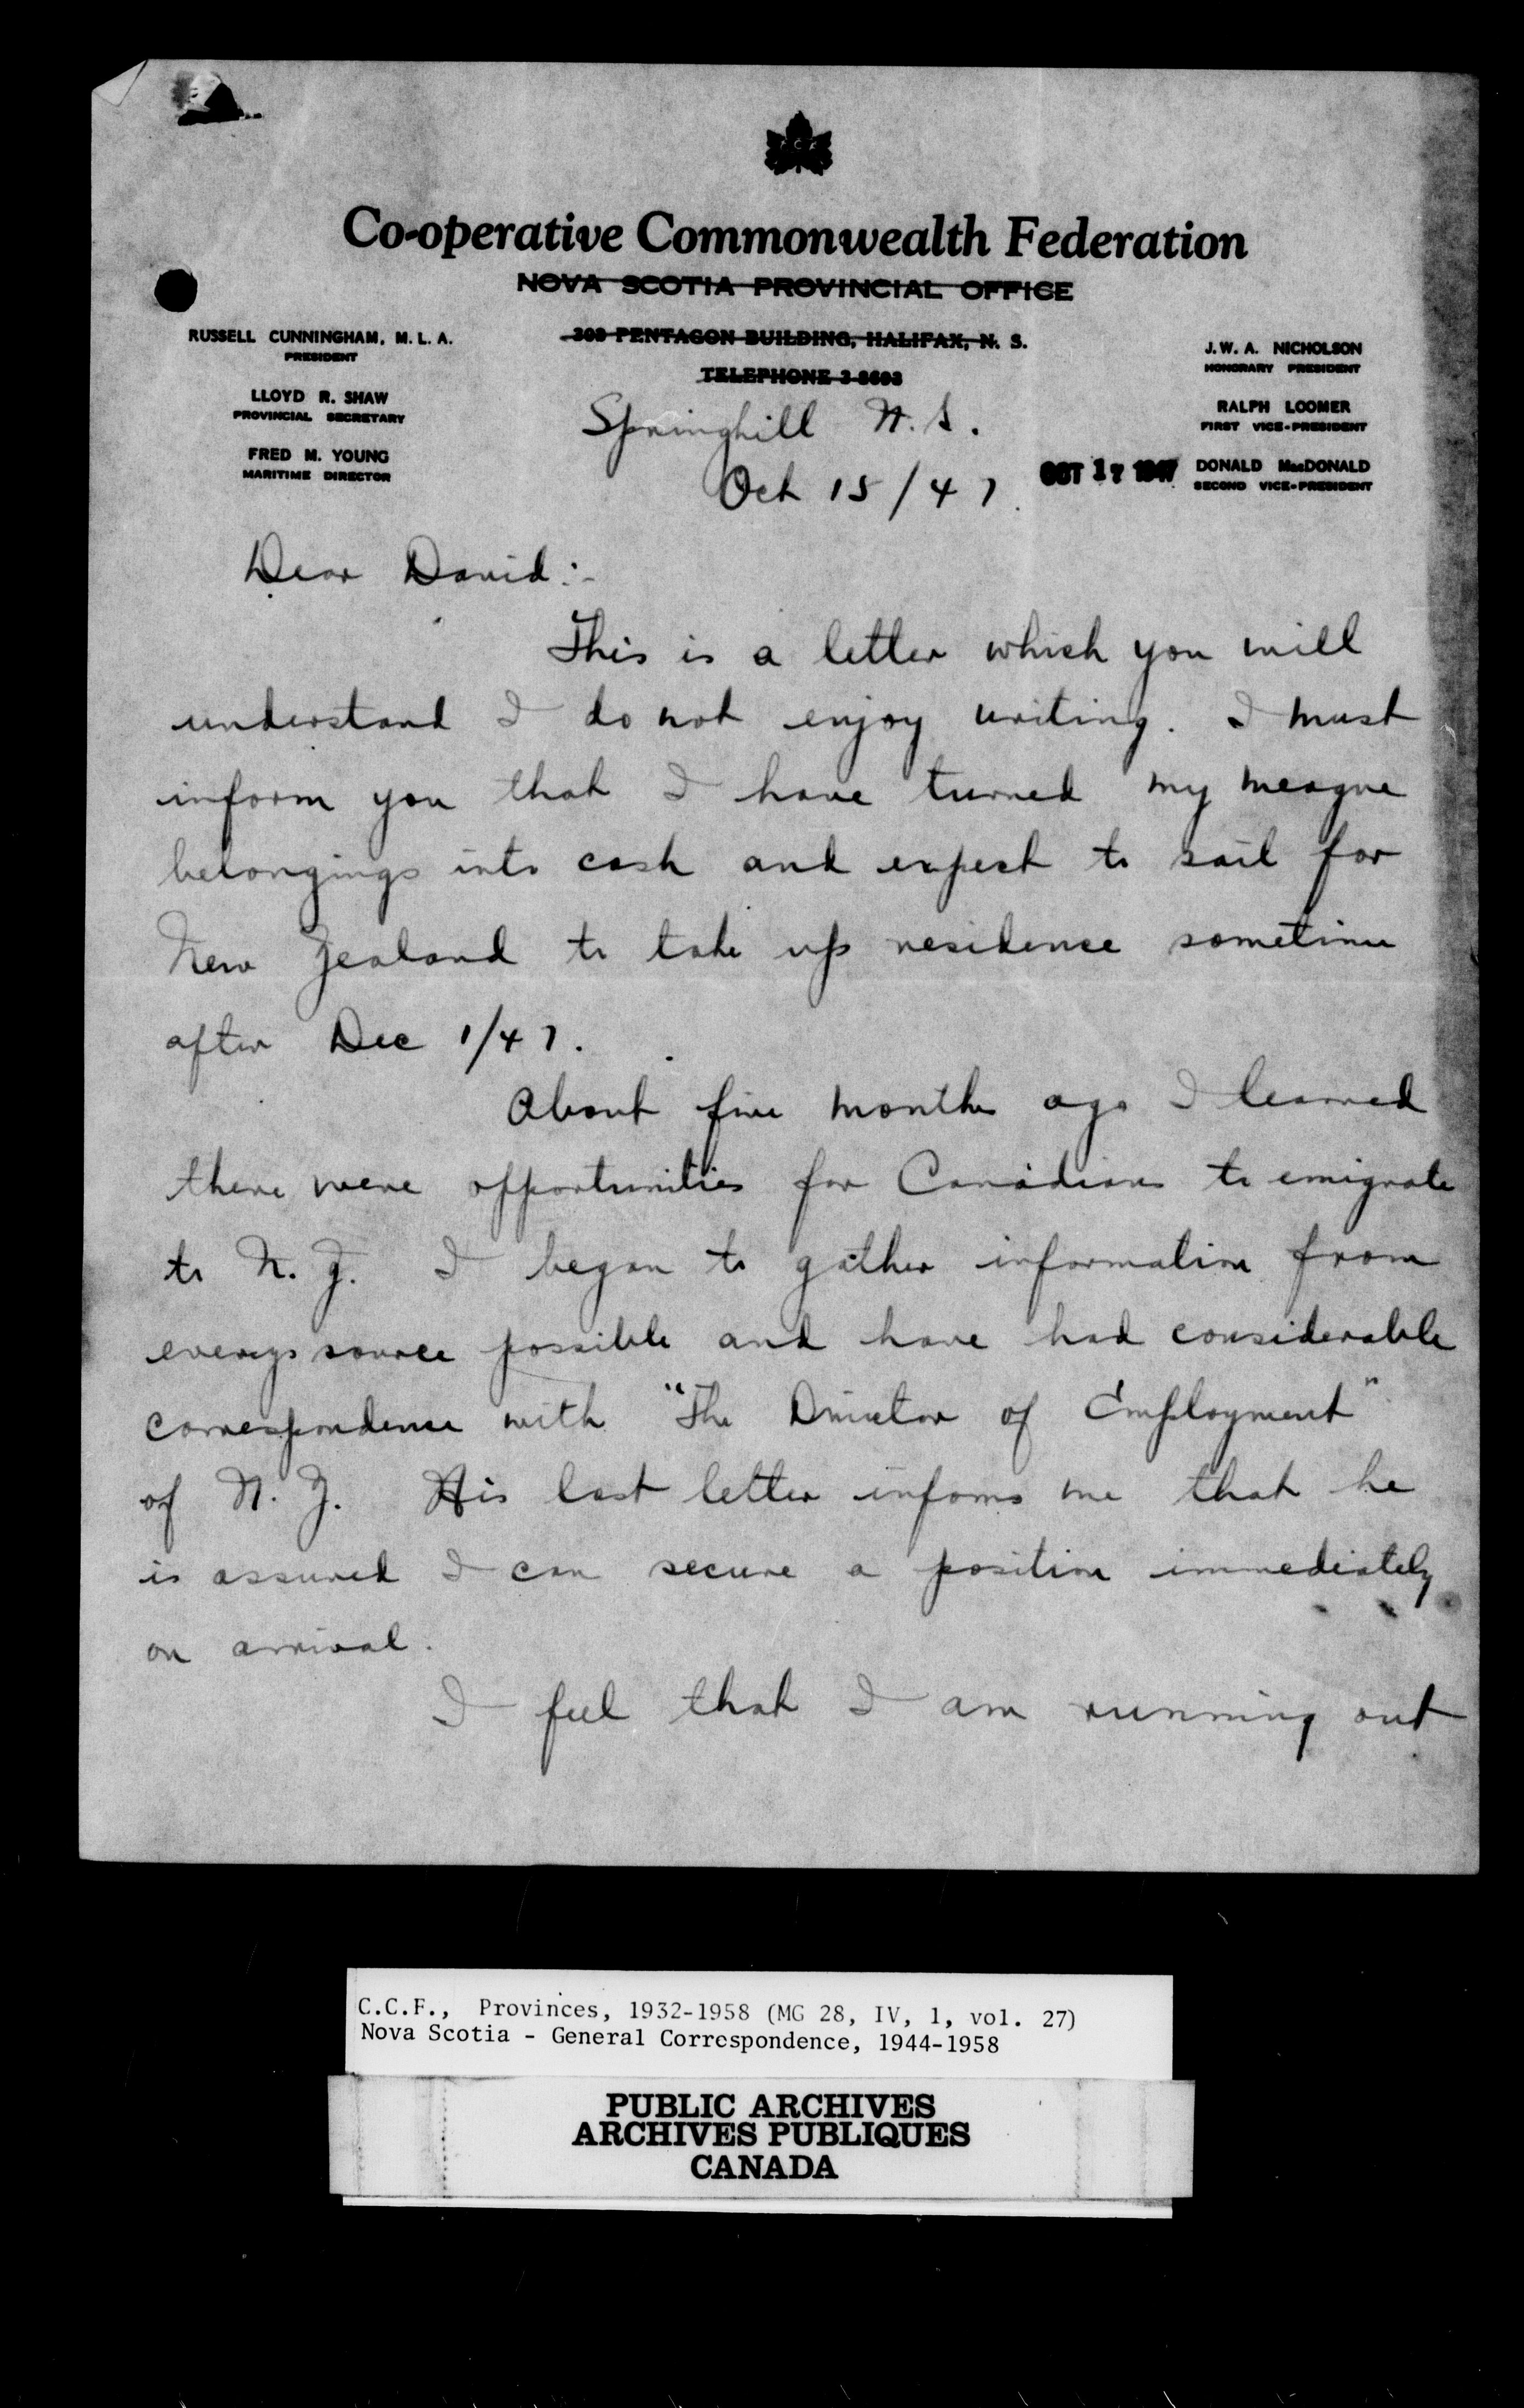 CCF
Co-operative Commonwealth Federation
NOVA SCOTIA PROVINCIAL OFFICE
309 PENTAGON BUILDING, HALIFAX, N. S.
TELEPHONE 3-8693
RUSSELL CUNNINGHAM, M. L. A.
PRESIDENT
LLOYD R. SHAW
PROVINCIAL SECRETARY
FRED M. YOUNG
MARITIME DIRECTOR
J. W. A. NICHOLSON
HONORARY PRESIDENT
RALPH LOOMER
FIRST VICE-PRESIDENT
DONALD MacDONALD
SECOND VICE-PRESIDENT
Springhill N.S.
Oct 15/47.
OCT 17 1947
Dear David:-
This is a letter which you will
understand I do not enjoy writing. I must
inform you that I have turned my meagre
belongings into cash and expect to sail for
New Zealand to take up residence sometime
after Dec 1/47.
About five months ago I learned
there were opportunities for Canadians to emigrate
to N. Z. I began to gather information from
every source possible and have had considerable
correspondence with "The Director of Employment"
of N. Z. His last letter infoms me that he
is assured I can secure a position immediately
on arrival.
I feel that I am running out
C.C.F., Provinces, 1932-1958 (MG 28, IV, 1, vol. 27)
Nova Scotia - General Correspondence, 1944-1958
PUBLIC ARCHIVES
ARCHIVES PUBLIQUES
CANADA